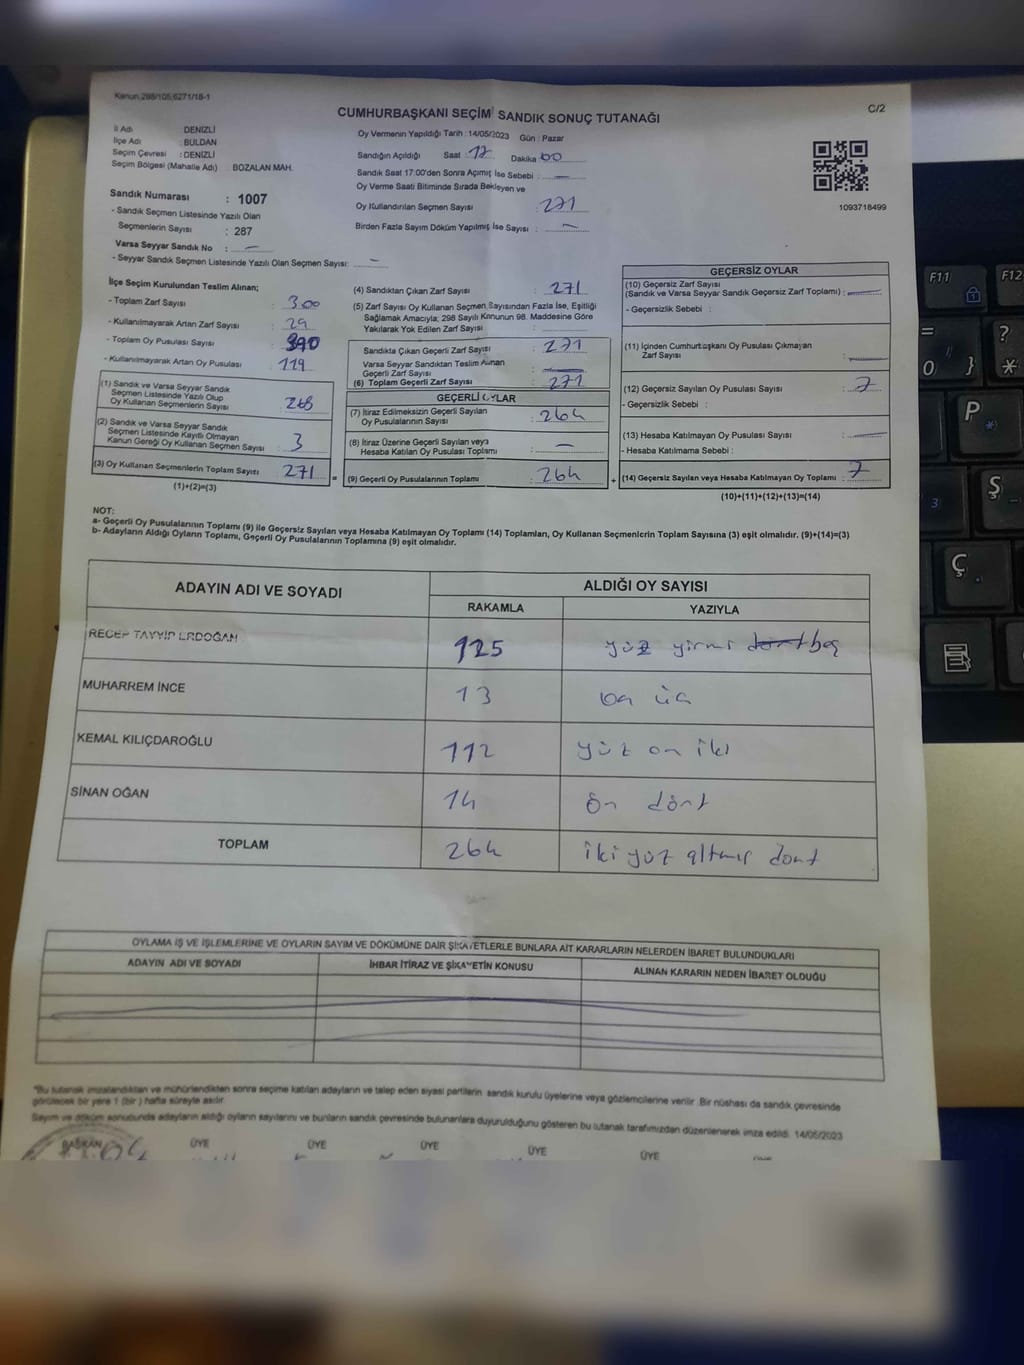 Kanun.298/105,6271/18-1
C/2
CUMHURBAŞKANI SEÇİMİ SANDIK SONUÇ TUTANAĞI
İl Adı DENİZLİ
İlçe Adı : BULDAN
Seçim Çevresi : DENİZLİ
Seçim Bölgesi (Mahalle Adı) : BOZALAN MAH.
Sandık Numarası : 1007
- Sandık Seçmen Listesinde Yazılı Olan
Seçmenlerin Sayısı : 287
Varsa Seyyar Sandık No : —
- Seyyar Sandık Seçmen Listesinde Yazılı Olan Seçmen Sayısı: —
Oy Vermenin Yapıldığı Tarih : 14/05/2023 Gün : Pazar
Sandığın Açıldığı Saat : 17 Dakika 00
Sandık Saat 17:00'den Sonra Açılmış İse Sebebi : —
Oy Verme Saati Bitiminde Sırada Bekleyen ve
Oy Kullandırılan Seçmen Sayısı : 271
Birden Fazla Sayım Döküm Yapılmış İse Sayısı : —
1093718499
İlçe Seçim Kurulundan Teslim Alınan;
- Toplam Zarf Sayısı : 300
- Kullanılmayarak Artan Zarf Sayısı : 29
- Toplam Oy Pusulası Sayısı : 390
- Kullanılmayarak Artan Oy Pusulası : 119
(1) Sandık ve Varsa Seyyar Sandık
Seçmen Listesinde Yazılı Olup
Oy Kullanan Seçmenlerin Sayısı : 268
(2) Sandık ve Varsa Seyyar Sandık
Seçmen Listesinde Kayıtlı Olmayan
Kanun Gereği Oy Kullanan Seçmen Sayısı : 3
(3) Oy Kullanan Seçmenlerin Toplam Sayısı : 271
(1)+(2)=(3)
(4) Sandıktan Çıkan Zarf Sayısı : 271
(5) Zarf Sayısı Oy Kullanan Seçmen Sayısından Fazla İse, Eşitliği
Sağlamak Amacıyla; 298 Sayılı Kanunun 98. Maddesine Göre
Yakılarak Yok Edilen Zarf Sayısı :
Sandıkta Çıkan Geçerli Zarf Sayısı : 271
Varsa Seyyar Sandıktan Teslim Alınan
Geçerli Zarf Sayısı : —
(6) Toplam Geçerli Zarf Sayısı : 271
GEÇERLİ OYLAR
(7) İtiraz Edilmeksizin Geçerli Sayılan
Oy Pusulalarının Sayısı : 264
(8) İtiraz Üzerine Geçerli Sayılan veya
Hesaba Katılan Oy Pusulası Toplamı : —
= (9) Geçerli Oy Pusulalarının Toplamı : 264
GEÇERSİZ OYLAR
(10) Geçersiz Zarf Sayısı
(Sandık ve Varsa Seyyar Sandık Geçersiz Zarf Toplamı) : —
- Geçersizlik Sebebi :
(11) İçinden Cumhurbaşkanı Oy Pusulası Çıkmayan
Zarf Sayısı : —
(12) Geçersiz Sayılan Oy Pusulası Sayısı : 7
- Geçersizlik Sebebi :
(13) Hesaba Katılmayan Oy Pusulası Sayısı : —
- Hesaba Katılmama Sebebi :
+ (14) Geçersiz Sayılan veya Hesaba Katılmayan Oy Toplamı : 7
(10)+(11)+(12)+(13)=(14)
NOT:
a- Geçerli Oy Pusulalarının Toplamı (9) ile Geçersiz Sayılan veya Hesaba Katılmayan Oy Toplamı (14) Toplamları, Oy Kullanan Seçmenlerin Toplam Sayısına (3) eşit olmalıdır. (9)+(14)=(3)
b- Adayların Aldığı Oyların Toplamı, Geçerli Oy Pusulalarının Toplamına (9) eşit olmalıdır.
ADAYIN ADI VE SOYADI ALDIĞI OY SAYISI
RAKAMLA YAZIYLA
RECEP TAYYİP ERDOĞAN 125 yüz yirmi dört beş
MUHARREM İNCE 13 on üç
KEMAL KILIÇDAROĞLU 112 yüz on iki
SİNAN OĞAN 14 ön dört
TOPLAM 264 iki yüz altmış dört
OYLAMA İŞ VE İŞLEMLERİNE VE OYLARIN SAYIM VE DÖKÜMÜNE DAİR ŞİKAYETLERLE BUNLARA AİT KARARLARIN NELERDEN İBARET BULUNDUKLARI
ADAYIN ADI VE SOYADI İHBAR İTİRAZ VE ŞİKAYETİN KONUSU ALINAN KARARIN NEDEN İBARET OLDUĞU
"Bu tutanak imzalandıktan ve mühürlendikten sonra seçime katılan adayların ve talep eden siyasi partilerin sandık kurulu üyelerine veya gözlemcilerine verilir. Bir nüshası da sandık çevresinde
görülecek bir yere 1 (bir ) hafta süreyle asılır.
Sayım ve döküm sonucunda adayların aldığı oyların sayılarını ve bunların sandık çevresinde bulunanlara duyurulduğunu gösteren bu tutanak tarafımızdan düzenlenerek imza edildi. 14/05/2023
BAŞKAN ÜYE ÜYE ÜYE ÜYE ÜYE
F11 F12
= ?
0 } *
P
3 Ş
Ç